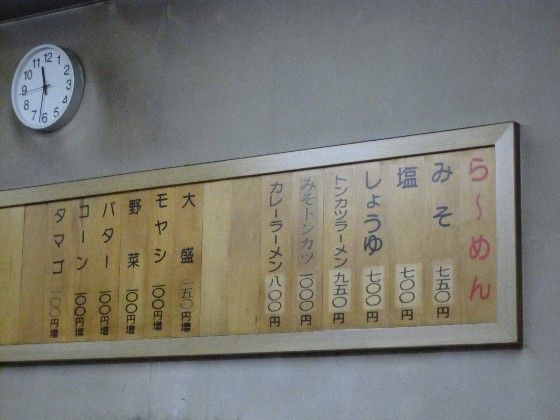 ら～めん
みそ 七五〇円
塩 七〇〇円
しょうゆ 七〇〇円
トンカツラーメン 九五〇円
みそトンカツ 一〇〇〇円
カレーラーメン 八〇〇円
大盛 一五〇円増
モヤシ 一〇〇円増
野菜 一〇〇円増
バター 一〇〇円増
コーン 一〇〇円増
タマゴ 一〇〇円増
12
1
2
3
4
5
6
7
8
9
10
11